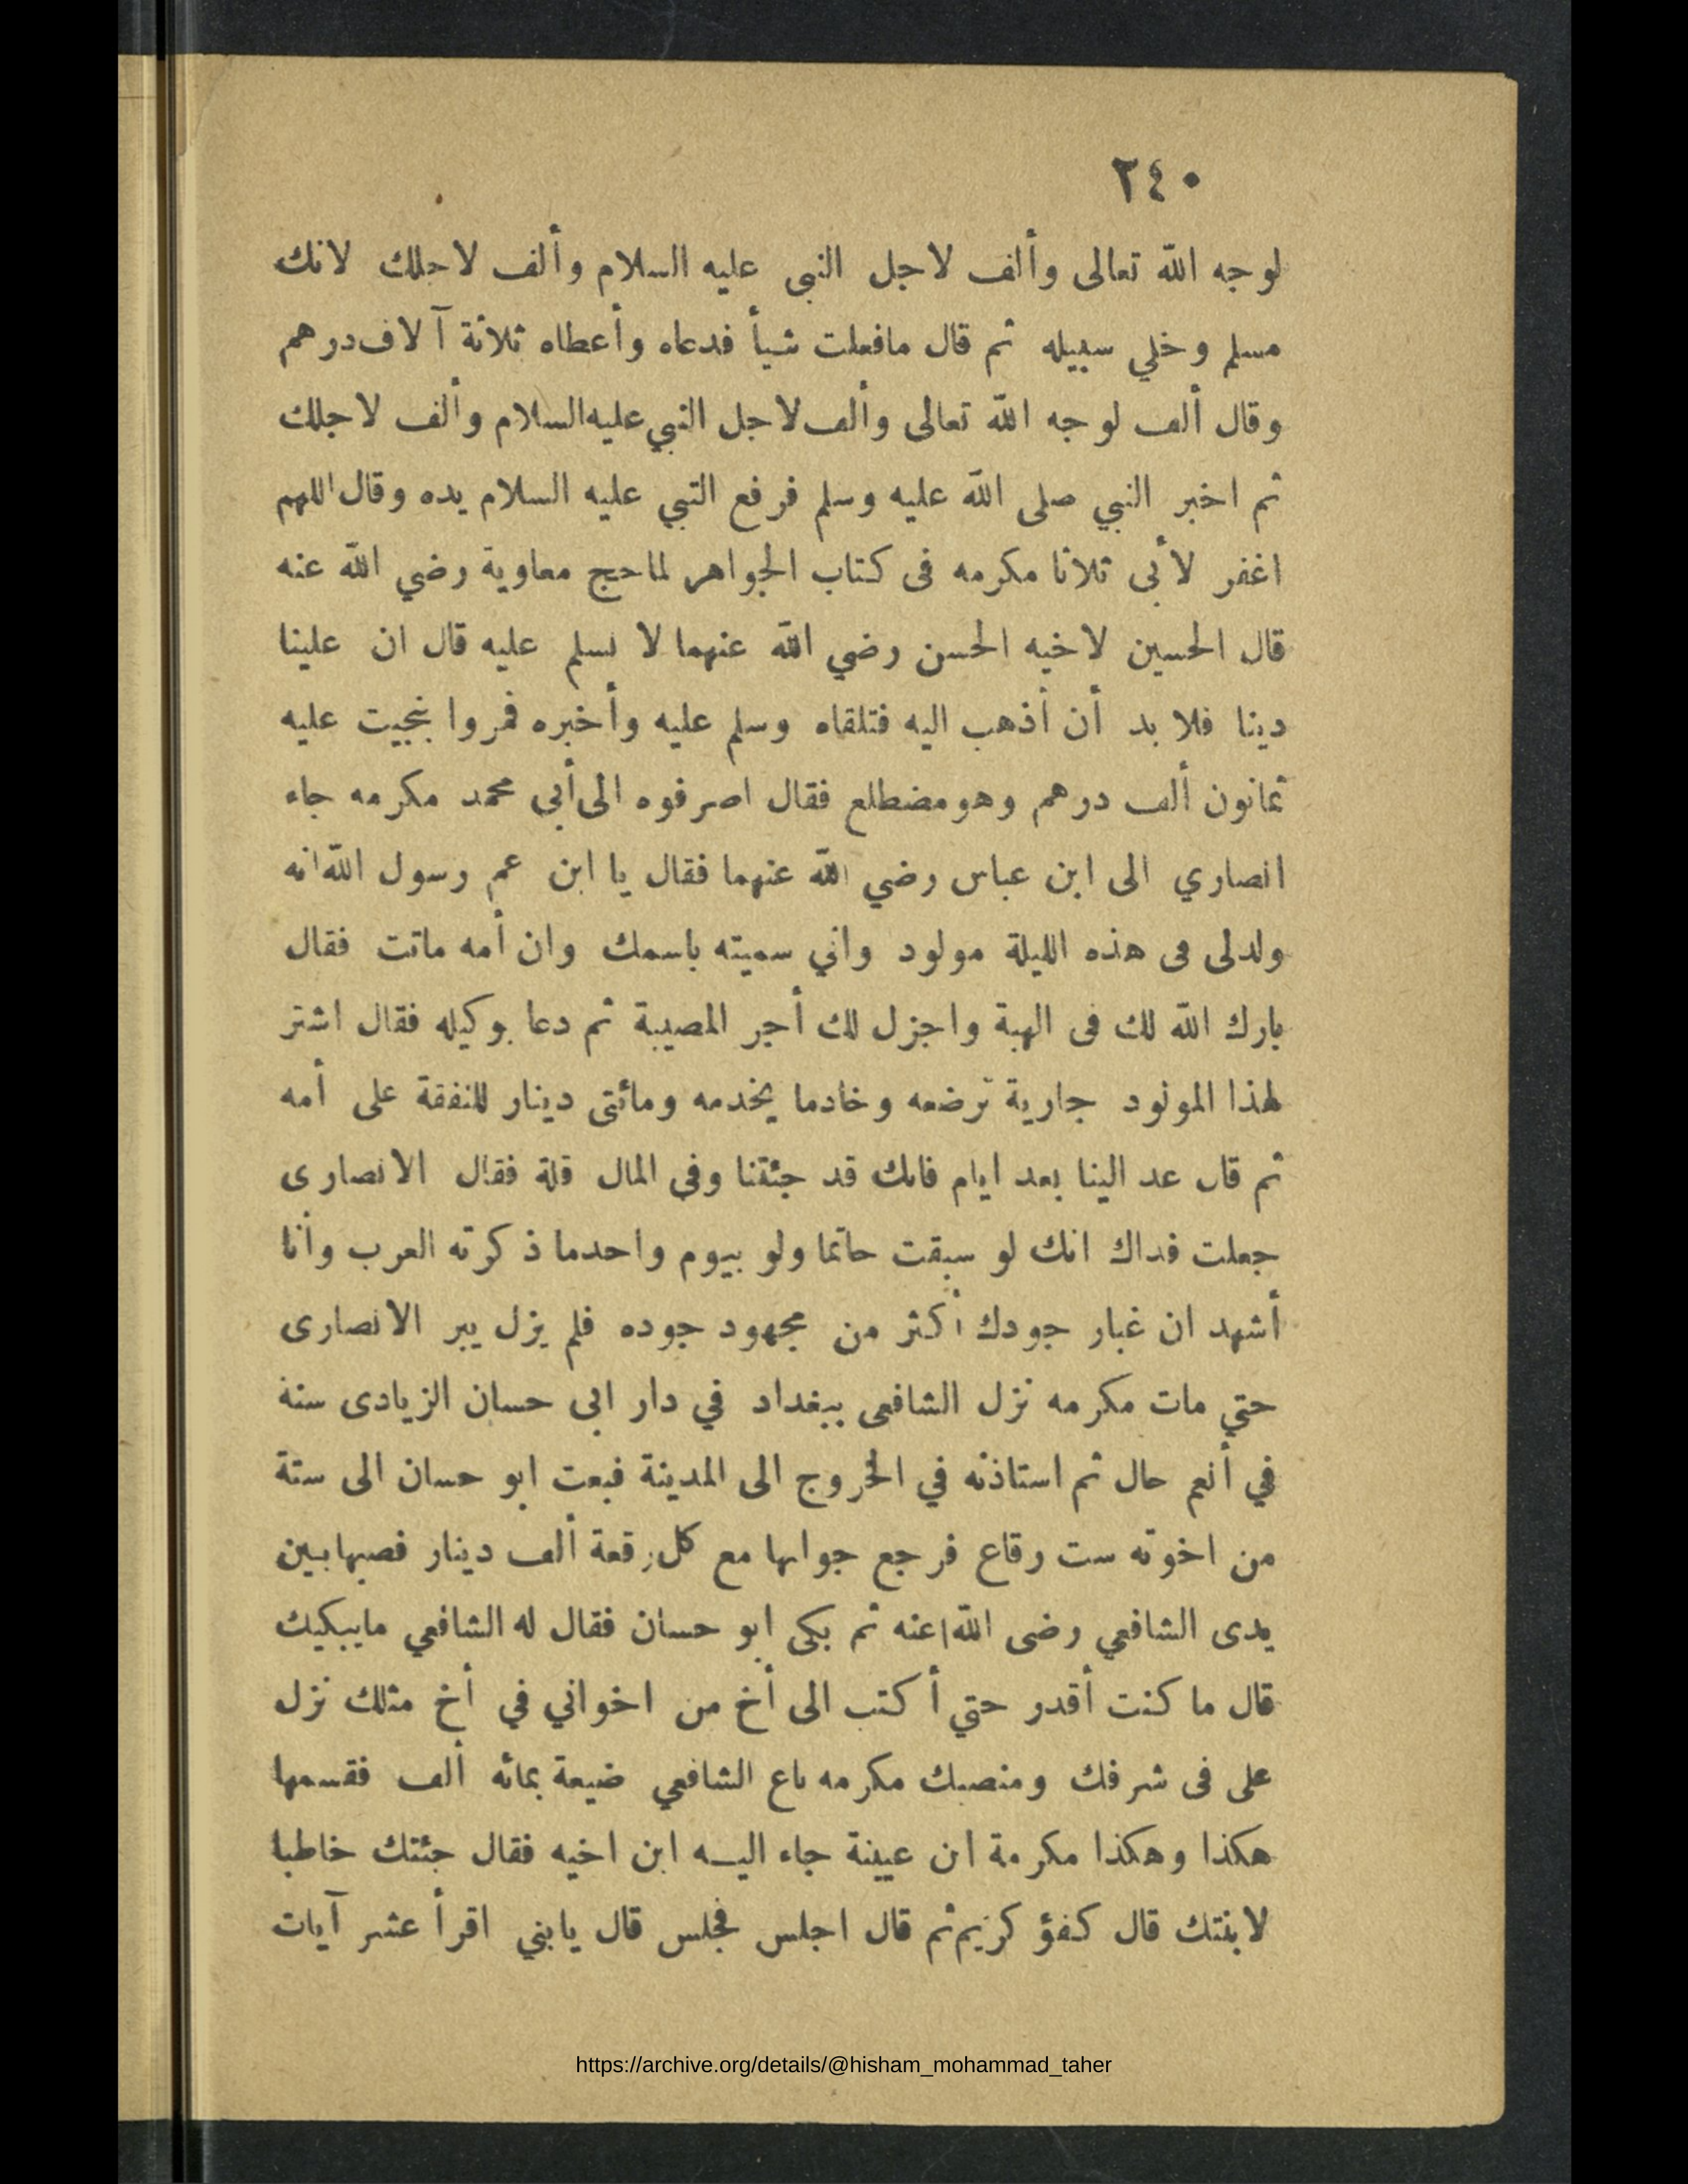 ٢٤٠
لوجه الله تعالى وألف لاجل النبى عليه السلام وألف لاجلك لانك
مسلم وخلي سبيله ثم قال مافعلت شيأ فدعاه وأعطاه ثلاثة آلاف درهم
وقال ألف لوجه الله تعالى وألف لاجل النبي عليه السلام وألف لاجلك
ثم اخبر النبي صلى الله عليه وسلم فرفع النبي عليه السلام يده وقال اللهم
اغفر لأبى ثلاثا مكرمه فى كتاب الجواهر لماحج معاوية رضي الله عنه
قال الحسين لاخيه الحسن رضي الله عنهما لا نسلم عليه قال ان علينا
دينا فلا بد أن أذهب اليه فتلقاه وسلم عليه وأخبره فمروا بنجيت عليه
ثمانون ألف درهم وهو مضطلع فقال اصرفوه الى أبي محمد مكرمه جاء
انصاري الى ابن عباس رضي الله عنهما فقال يا ابن عم رسول الله انه
ولدلى فى هذه الليلة مولود واني سميته باسمك وان أمه ماتت فقال
بارك الله لك فى الهبة واجزل لك أجر المصيبة ثم دعا بوكيله فقال اشتر
لهذا المولود جارية ترضعه وخادما يخدمه ومائتى دينار للنفقة على أمه
ثم قال عد الينا بعد ايام فانك قد جئتنا وفى المال قلة فقال الانصارى
جعلت فداك انك لو سبقت حاتما ولو بيوم واحدما ذكرته العرب وأنا
أشهد ان غبار جودك أكثر من مجهود جوده فلم يزل يبر الانصارى
حتي مات مكرمه نزل الشافعى ببغداد في دار ابى حسان الزيادى سنة
في أنعم حال ثم استاذنه في الخروج الى المدينة فبعت ابو حسان الى ستة
من اخوته ست رقاع فرجع جوابها مع كل رقعة ألف دينار فصبها بين
يدى الشافعي رضى الله عنه ثم بكى ابو حسان فقال له الشافعي مايبكيك
قال ما كنت أقدر حتي أكتب الى أخ من اخواني في أخ مثلك نزل
على فى شرفك ومنصبك مكرمه باع الشافعي ضيعة بمائه ألف فقسمها
هكذا وهكذا مكرمة ابن عيينة جاء اليـه ابن اخيه فقال جئتك خاطبا
لابنتك قال كفؤ كريم ثم قال اجلس فجلس قال يابني اقرأ عشر آيات
https://archive.org/details/@hisham_mohammad_taher